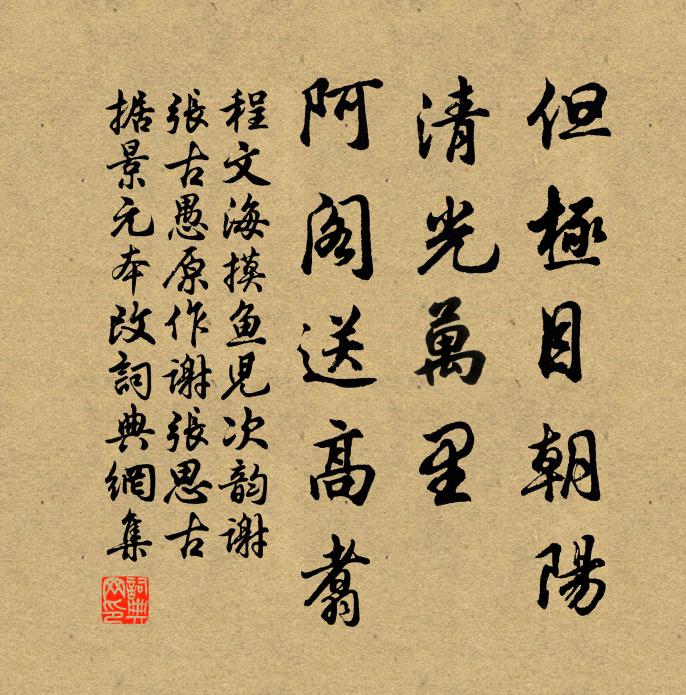 但極目朝陽
清光萬里
阿閣送高翥
程文海摸鱼児次韵謝
張古愚原作謝張思古
据景元本改詞典網集
詞典网印